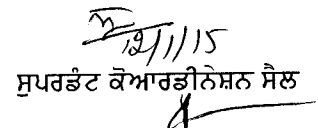 12/11/15
ਸੁਪਰਡੰਟ ਕੋਆਰਡੀਨੇਸ਼ਨ ਸੈਲ